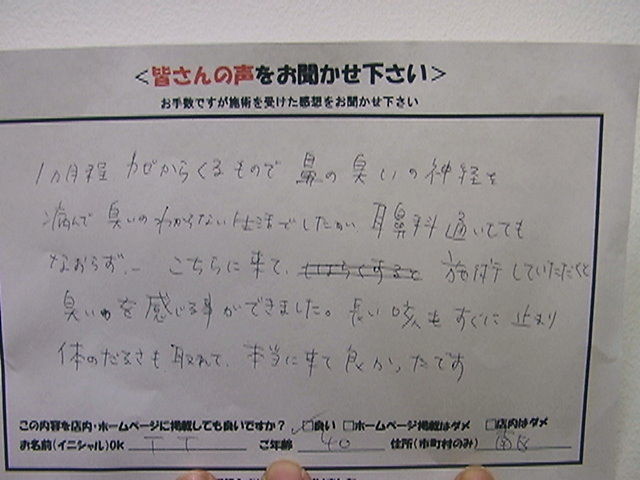 <皆さんの声をお聞かせ下さい>
お手数ですが施術を受けた感想をお聞かせ下さい
1ヵ月程 カゼからくるもので 鼻の臭いの神経を
病んで 臭いのわからない生活でしたが 耳鼻科通いでても
なおらず、 こちらに来て、 施術していただくと
臭いを感じる事ができました。長い咳もすぐに止まり
体のだるさも取れて、本当に来て良かったです
この内容を店内・ホームページに掲載しても良いですか？ □良い □ホームページ掲載はダメ □店内はダメ
お名前(イニシャル)OK T T ご年齢 40 住所(市町村のみ) 南区